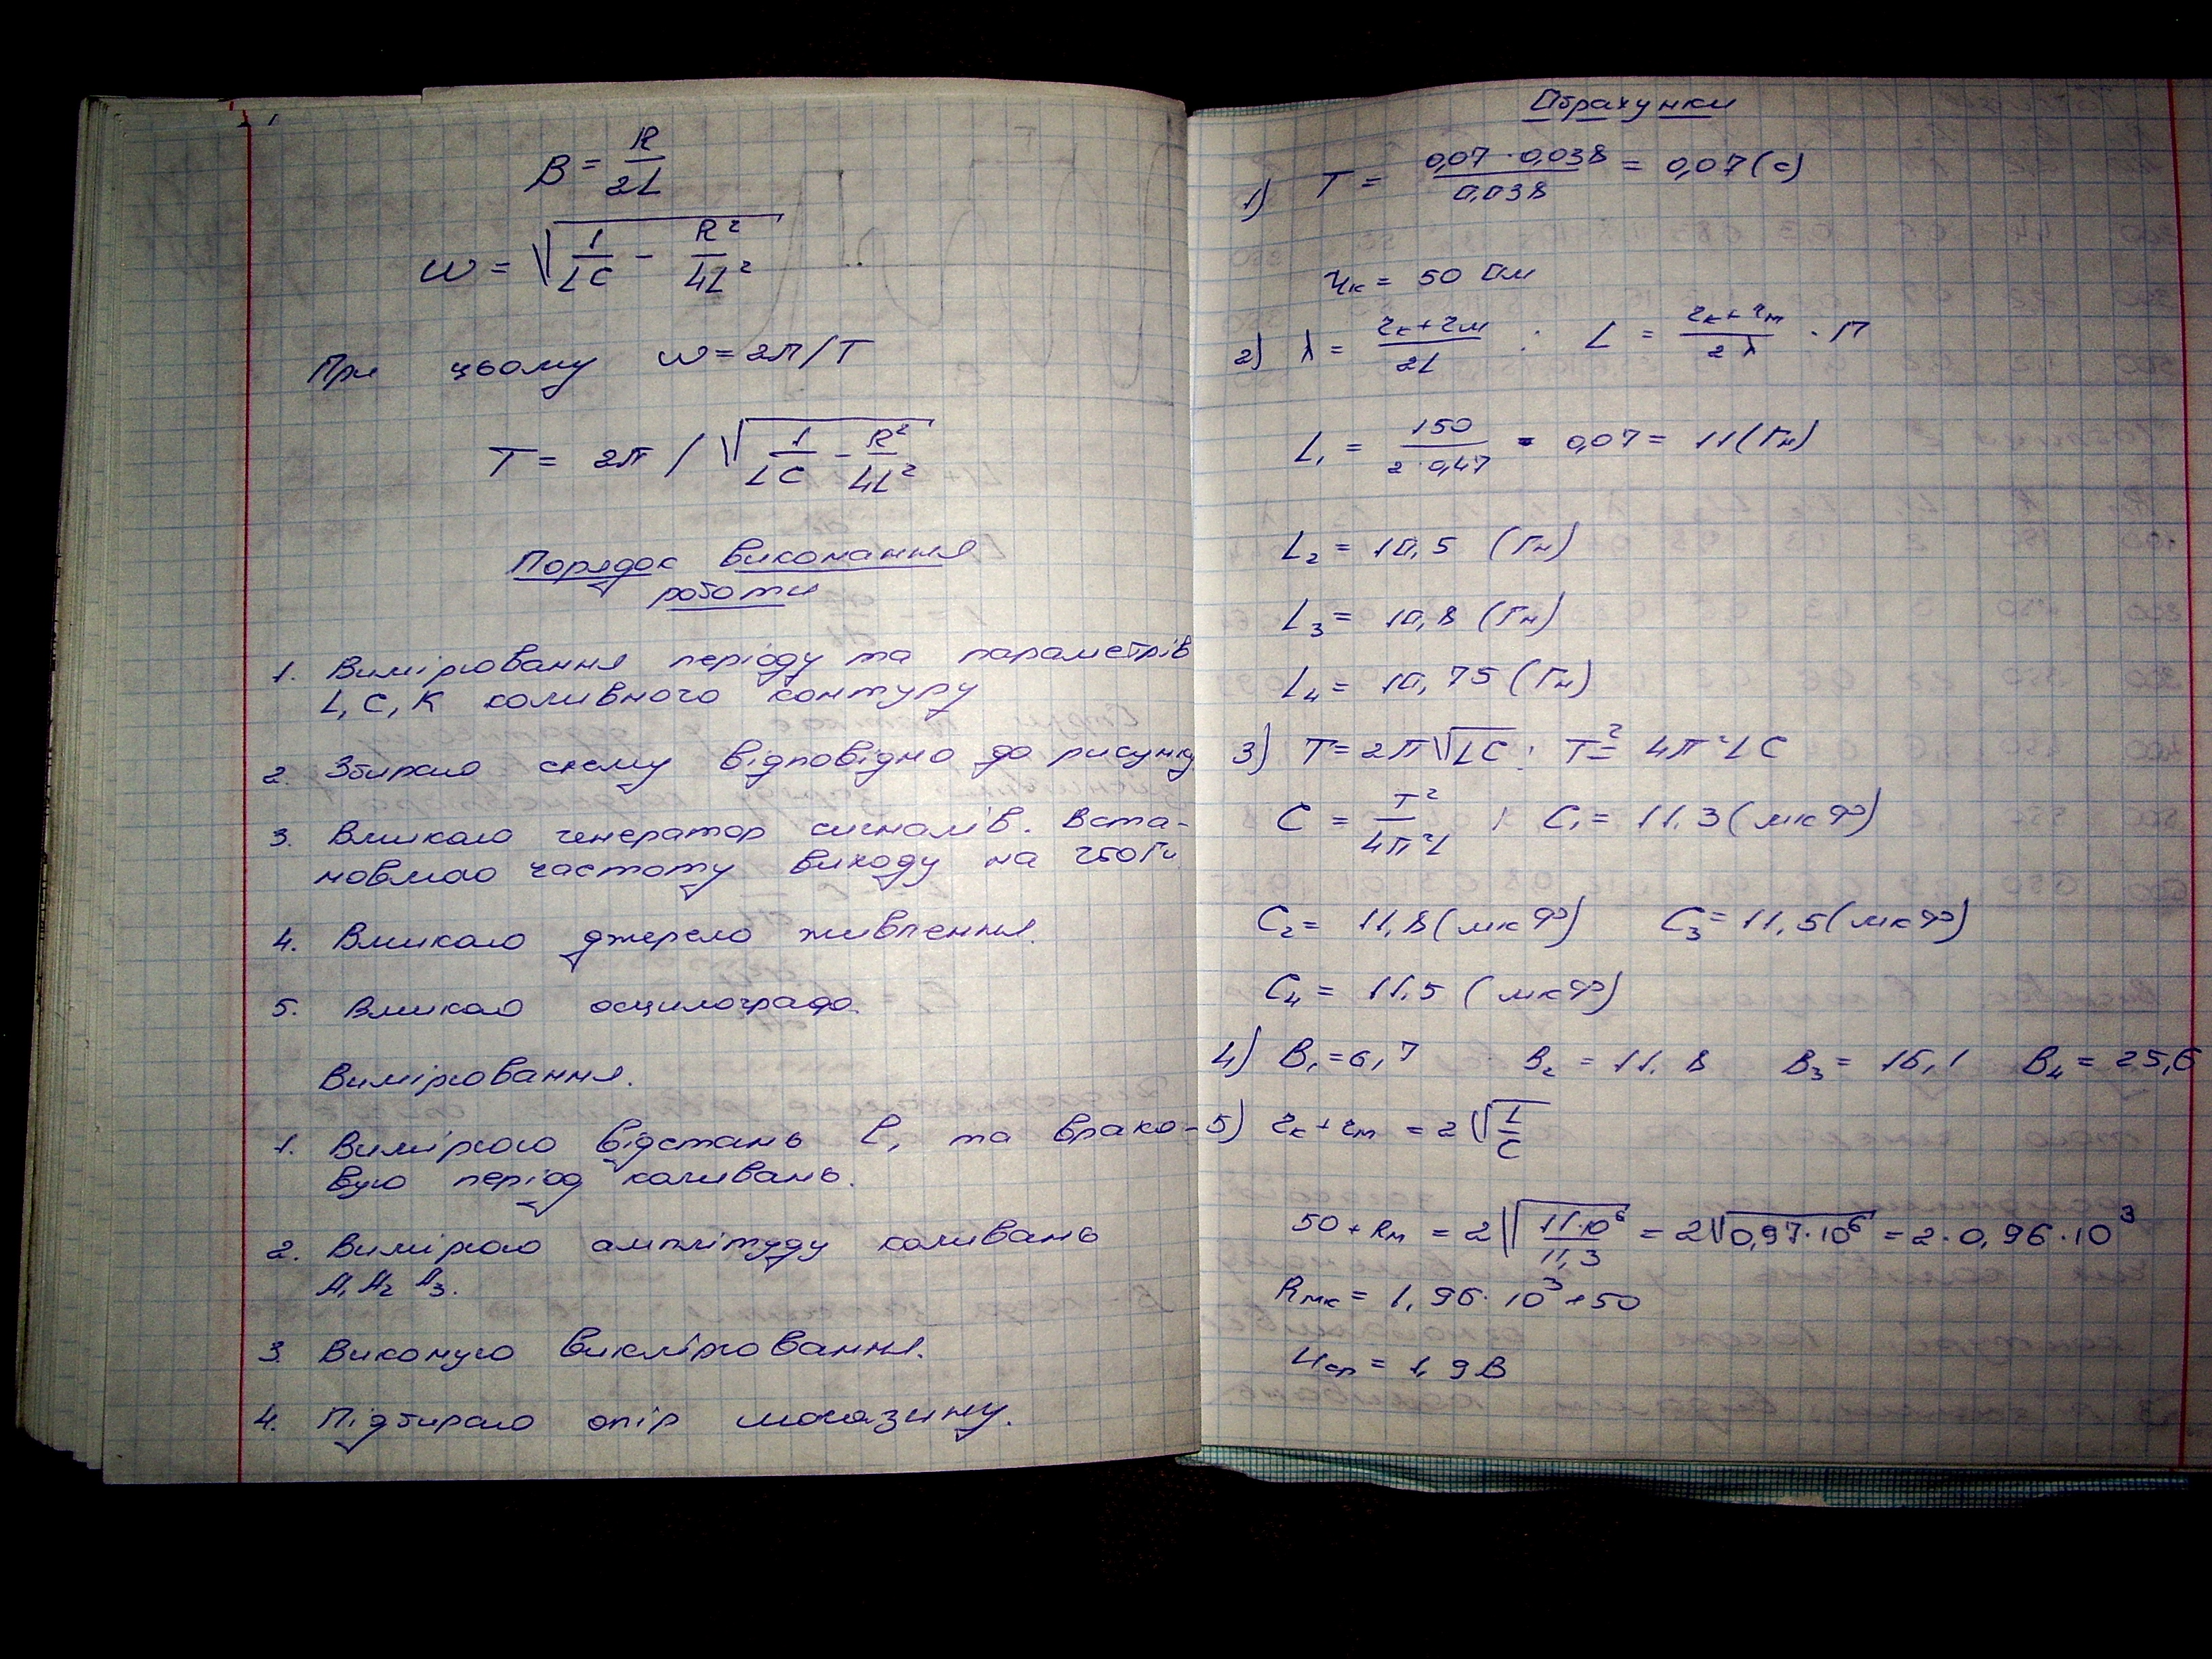 β = R/2L
ω = √(1/LC - R²/4L²)
При цьому ω = 2π/T
T = 2π / √(1/LC - R²/4L²)
Порядок виконання
роботи
1. Вимірювання періоду та параметрів
L, C, R коливного контуру
2. Збираю схему відповідно до рисунку
3. Вмикаю генератор сигналів. Вста-
новлюю частоту виходу на 250 Гц.
4. Вмикаю джерело живлення.
5. Вмикаю осцилограф.
Вимірювання.
1. Вимірюю відстань l, та врахо-
вую період коливань.
2. Вимірюю амплітуду коливань
A₁ A₂ A₃.
3. Виконую вимірювання.
4. Підбираю опір магазину.
Обрахунки
1) T = 0,07 · 0,038 / 0,038 = 0,07 (с)
r к = 50 Ом
2) λ = (r к + r м)/2L ; L = (r к + r м)/2λ · П
L₁ = 150/(2 · 0,47) · 0,07 = 11 (Гн)
L₂ = 10,5 (Гн)
L₃ = 10,8 (Гн)
L₄ = 10,75 (Гн)
3) T = 2π√LC ; T² = 4π²LC
C = T²/4π²L ; C₁ = 11.3 (мкФ)
C₂ = 11,8 (мкФ) C₃ = 11,5 (мкФ)
C₄ = 11,5 (мкФ)
4) B₁ = 6,7 B₂ = 11.8 B₃ = 16,1 B₄ = 25,6
5) r к + r м = 2√(L/C)
50 + Rм = 2√(11·10⁶/11,3) = 2√(0,97·10⁶) = 2·0,96·10³
Rмк = 1,96·10³+50
Uср = 1,9 В